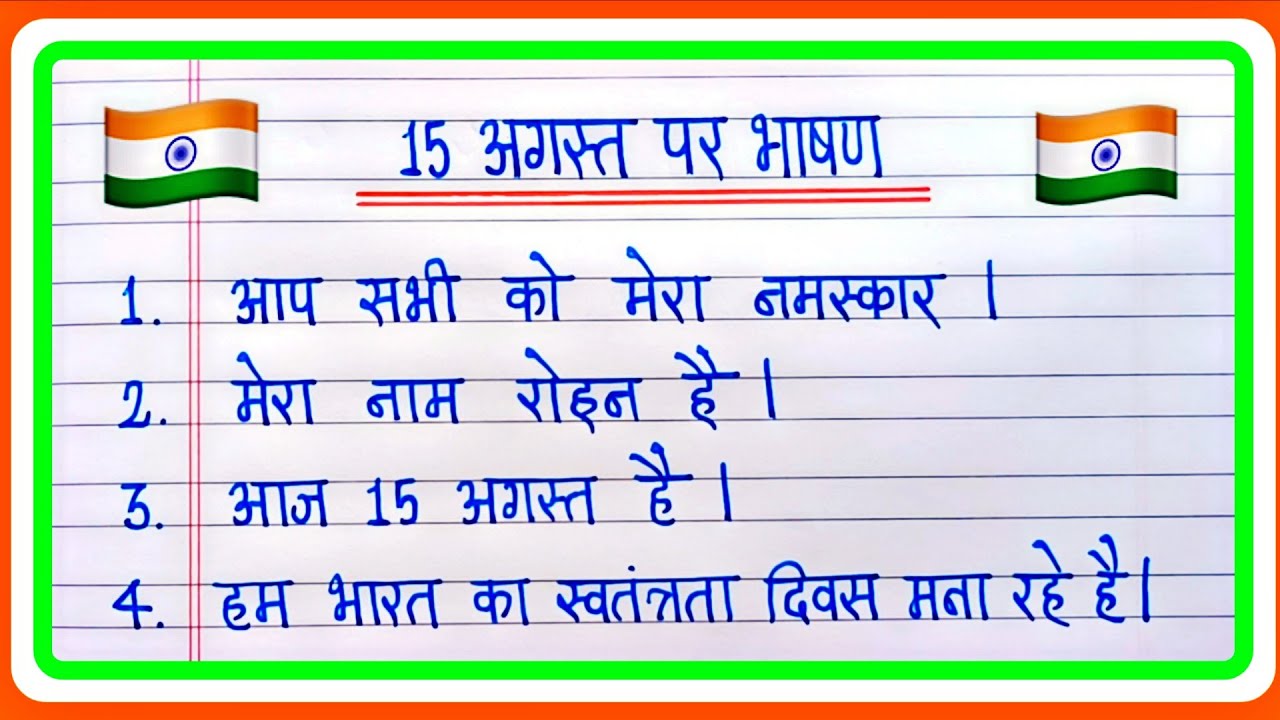 15 अगस्त पर भाषण
1. आप सभी को मेरा नमस्कार ।
2. मेरा नाम रोइन है ।
3. आज 15 अगस्त है ।
4. हम भारत का स्वतंत्रता दिवस मना रहे है।